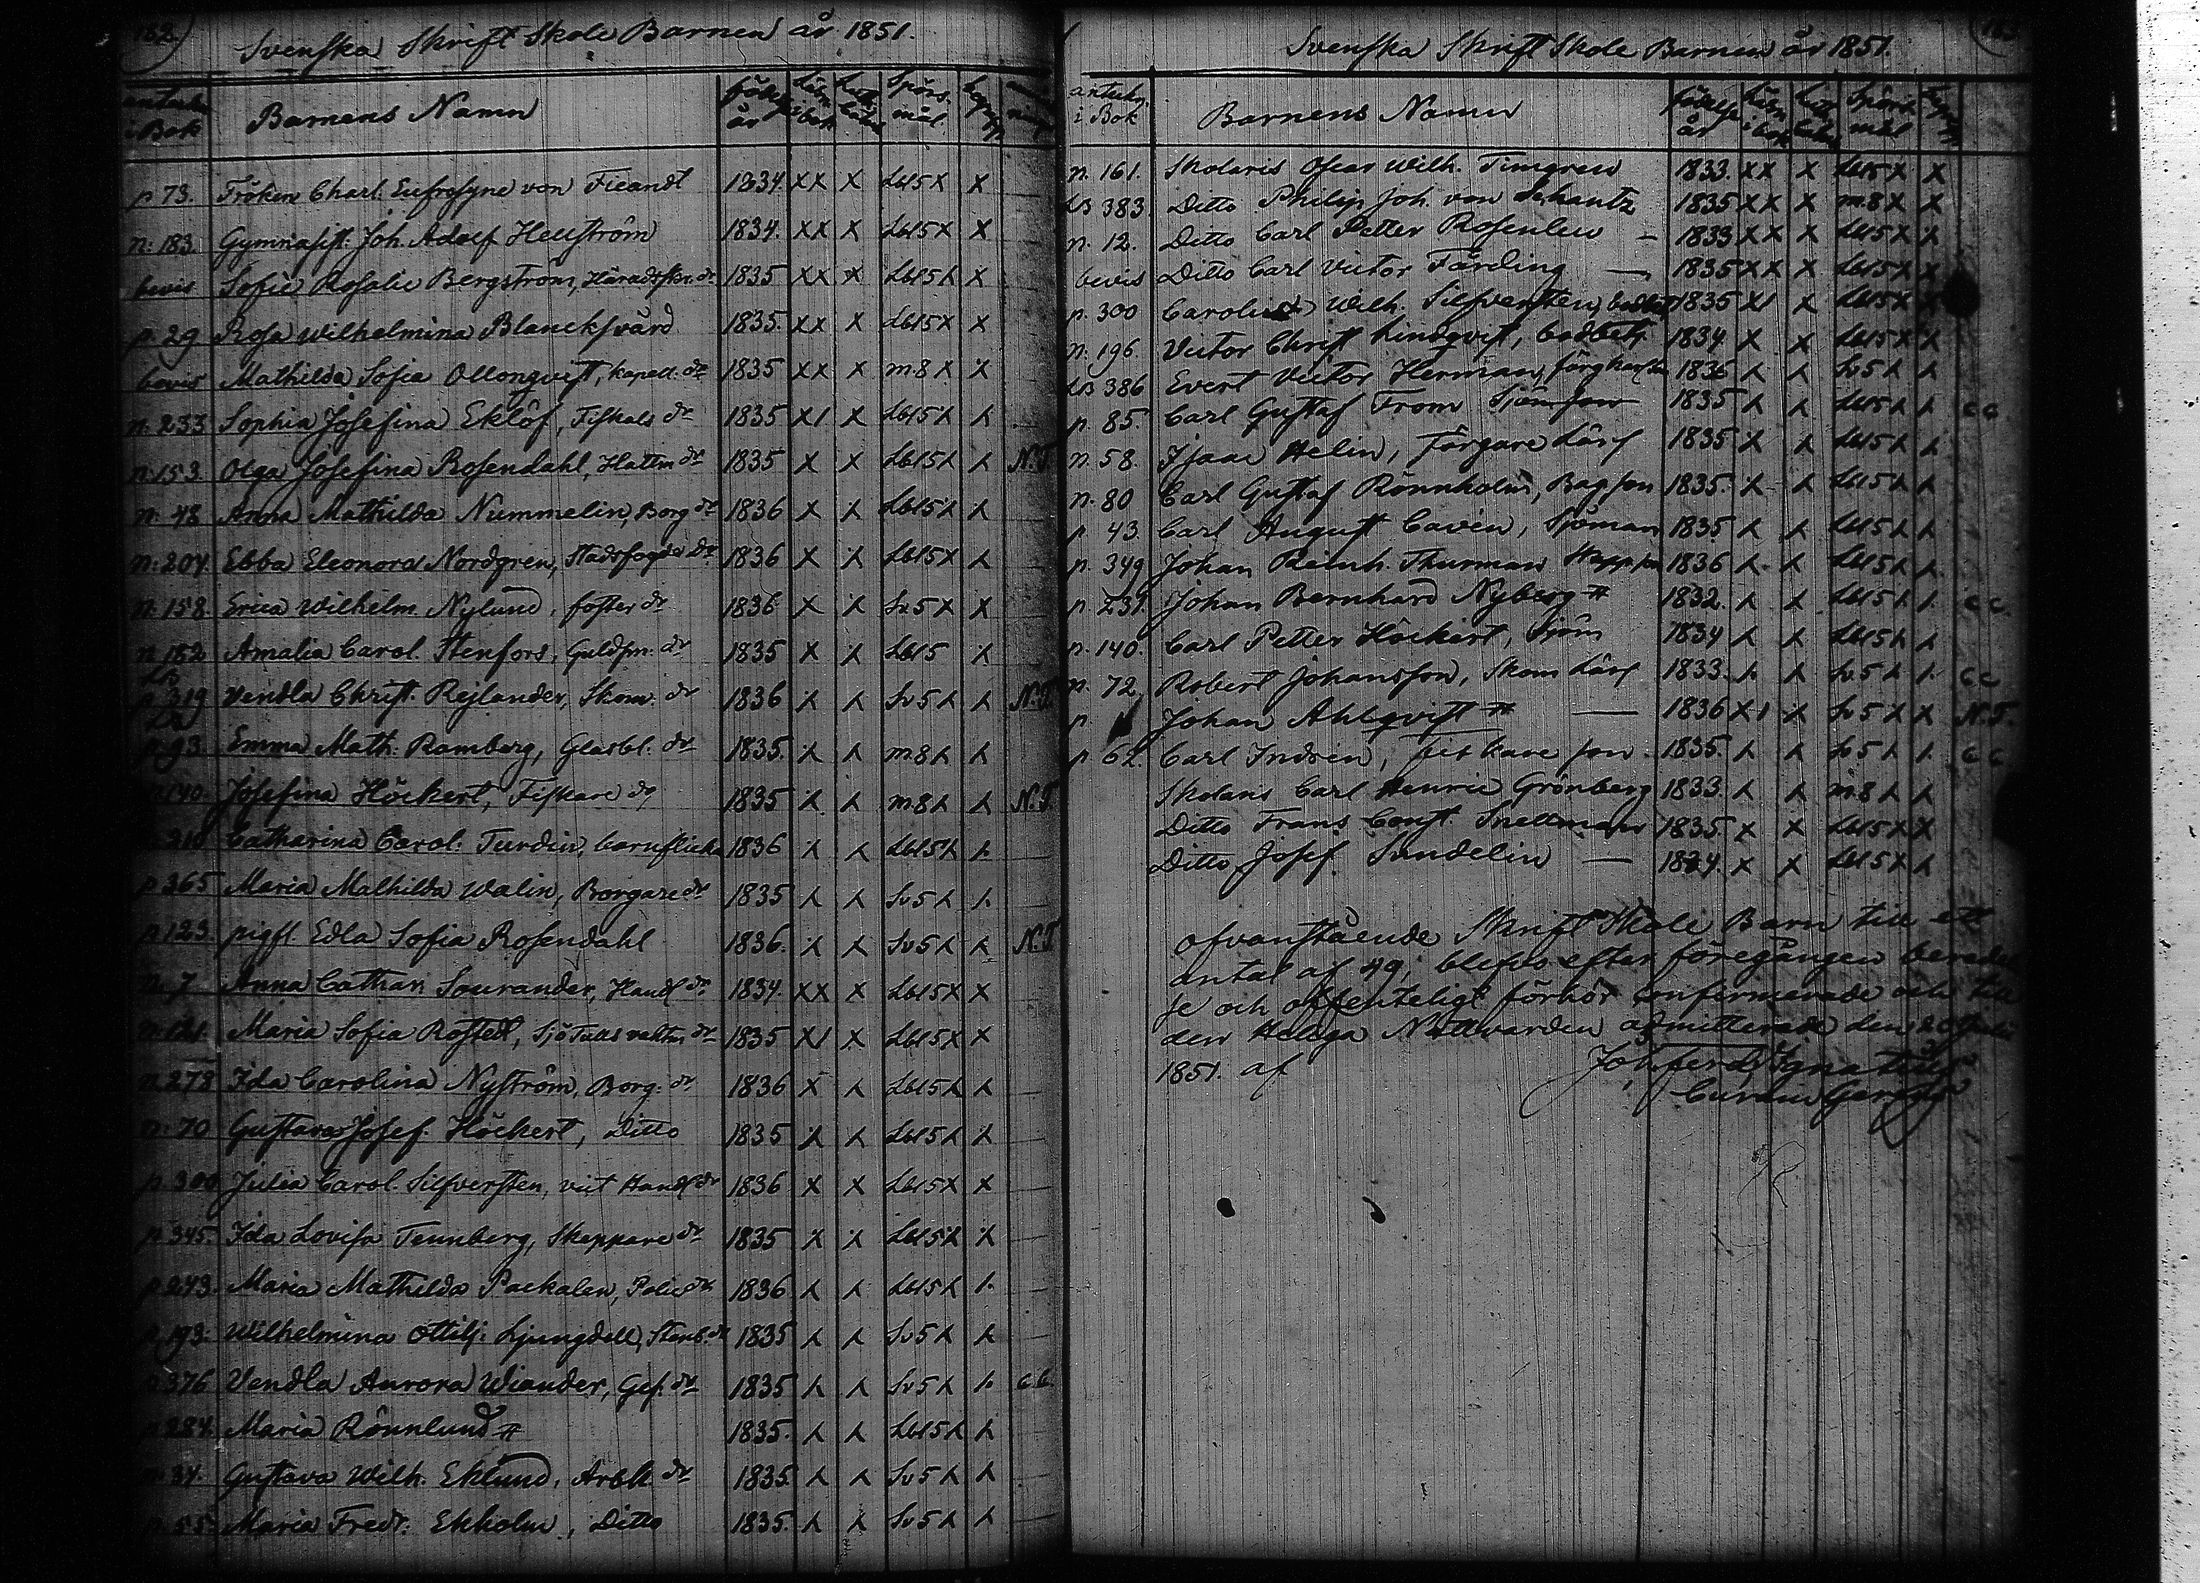 182
Svenska Skrift Skole Barnen år 1851.
i Bok Barnens Namn födelse år Läsn. i bok Spörs mål begrepp
p 73. Fröken Charl. Eufrosyne von Fieandt 1834. XX X Lbl5X X
n: 183 Gymnasist. Joh. Adolf Hellström 1834. XX X Lbl5X X
bevis Sofie Rosalie Bergström, Häradsskr. dr 1835 XX X Lbl5X X
p. 29 Rosa Wilhelmina Blanckswärd 1835. XX X Lbl5X X
bevis Mathilda Sofia Ollonqvist, kapell. dr 1835 XX X m8X X
n. 233 Sophia Josefina Eklöf, Fiskals dr 1835 X1 X Lbl5X X
n. 153. Olga Josefina Rosendahl, Hattm dr 1835 X X Lbl5X X N.T.
n. 48 Anna Mathilda Nummelin, Borg dr 1836 X X Lbl5X X
n. 204 Ebba Eleonora Nordgren, Stadsfogde dr 1836 X X Lbl5X X
n. 158. Erica Wilhelm. Nylund, foster dr 1836 X X Sv5X X
n 182 Amalia Carol. Stenfors, Guldsm. dr 1835 X X Lbl5 X
p. 319 Vendla Christ. Rejlander, Skom. dr 1836 X X Sv5X X N.T.
p. 93 Emma Math: Ramberg, Glasbl. dr 1835. X X m8X X
n 140. Josefina Höckert, Fiskare dr 1835 X X m8X X N.T.
310 Catharina Carol: Turdin, 1836 X X Lbl5X X
p 365 Maria Mathilda Walin, Borgare dr 1835 X X Sv5X X
p. 123. pigfl. Edla Sofia Rosendahl 1836. X X Sv5X X N.T
n. 7 Anna Cathar. Sourander, Handl dr 1834. XX X Lbl5X X
n. 121. Maria Sofia Rostedt, Sjö Tullsvaktm dr 1835 X1 X Lbl5X X
n. 278 Ida Carolina Nyström, Borg. dr 1836 X X Lbl5X X
n. 70 Gustava Josef. Höckert, Ditto 1835 X X Lbl5X X
p. 300 Julia Carol. Silfversten, vict Handl dr 1836 X X Lbl5X X
p. 345. Ida Lovisa Tennberg, Skeppare dr 1835 X X Lbl5X X
p. 243. Maria Mathilda Packalen, Polis dr 1836 X X Lbl5X X
p. 193. Wilhelmina Ottilj: Ljungdell, Stenb. dr 1835 X X Sv5X X
376 Vendla Aurora Wiander, Ges. dr 1835 X X Sv5X X cc
p 284. Maria Rönnlund # 1835. X X Lbl5X X
n. 34. Gustava Wilh. Eklund, Arbk. dr 1835. X X Sv5X X
p. 55. Maria Fredr: Ekholm, Ditto 1835. X X Sv5X X
Svenska Skrift Skole Barnen år 1851.
antekn. i Bok Barnens Namn födelse år Läsn i bok Spörs mål
n. 161. Skolaris Oscar Wilh. Timgren 1833. XX X Lbl5X X
LB 383. Ditto Philip Joh. von Schantz 1835 XX X m8X X
n. 12. Ditto Carl Petter Rosenlew – 1833 XX X Lbl5X X
bevis Ditto Carl Victor Färding — 1835 XX X Lbl5X X
p. 300 Wilh. Silfversten, 1835 X1 X Lbl5X X
n. 196. Victor Christ Lindqvist, 1834. X X Lbl5X X
LB 386 Evert Victor Herman, 1836 X X Sv5X X
p. 85. Carl Gustaf From Sjöm son 1835 X X Lbl5X X cc
n. 58. Isaac Helin, Förgare Lärl 1835 X X Lbl5X X
n. 80 Carl Gustaf Rönnholm, Bag son 1835. X X Lbl5X X
p 43 Carl August Cavén, Sjöman 1835 X X Lbl5X X
p. 349 Johan Reinh. Thurman Skepp son 1836 X X Lbl5X X
p. 231. Johan Bernhard Nyberg # 1832. X X Lbl5X X cc
n. 140. Carl Petter Höckert, Sjöm 1834 X X Lbl5X X
n. 72 Robert Johansson, Skom Lärl 1833. X X Sv5X X cc
p. Johan Ahlqvist # — 1836 X1 X Sv5X X N.T.
p 62. Carl Indrén, Fiskare son 1835. X X Sv5X X cc
Skolaris Carl Henric Grönberg 1833. X X m8X X
Ditto Frans Const. Snellman 1835. X X Lbl5X X
Ditto Josef Sundelin — 1834. X X Lbl5X X
Ofvanstående Skrift Skole Barn till ett
antal af 49, blefvo efter föregången beredel
se och offenteligt förhör confirmerade och till
den Heliga Nattvarden admitterade den
1851. af Joh. Ferd. Ignatius